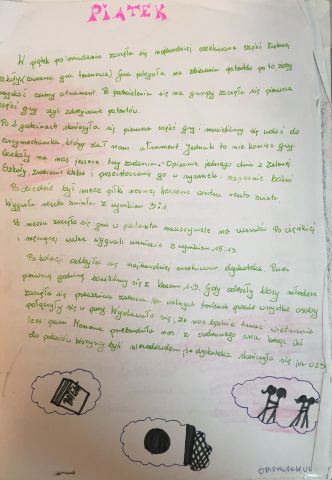 PIĄTEK
W piątek po śniadaniu zaczęła się najbardziej oczekiwana część Zielonej
Szkoły (czwarta gra terenowa) Gra polegała na zbieraniu patentów po to żeby
wygrać cenny atrament. Po podzieleniu się na grupy zaczęła się pierwsza
część gry czyli zdobywanie patentów.
Po 2 godzinach skończyła się pierwsza część gry i musieliśmy się udać do
arcymechanika, który dał nam atrament. Jednak to nie koniec gry.
Czekały na nas jeszcze trzy zadania - Opisanie jednego dnia z Zielonej
Szkoły, znalezienie klubu i przedstawienie go w rysunku - napisanie baśni
Po obiedzie był mecz piłki nożnej kontra reszta świata
Wygrała reszta świata z wynikiem 3:1.
Po meczu zaczęła się gra w palanta nauczyciele na uczniów. Po ciężkiej
i męczącej walce wygrali uczniowie z wynikiem 15:13
Po kolacji odbyła się najbardziej oczekiwana dyskoteka. Przez
pierwszą godzinę bawiliśmy się z klasami 1-3. Gdy odeszły klasy młodsze
zaczęła się prawdziwa zabawa. Do wolnych tańców prawie wszystkie osoby
połączyły się w pary. Wydawało się, że noc będzie trwać wiecznie
lecz pan Roman przebudził nas z cudownego snu każąc iść
do pokoju. Wszyscy byli niezadowoleni, że dyskoteka skończyła się już